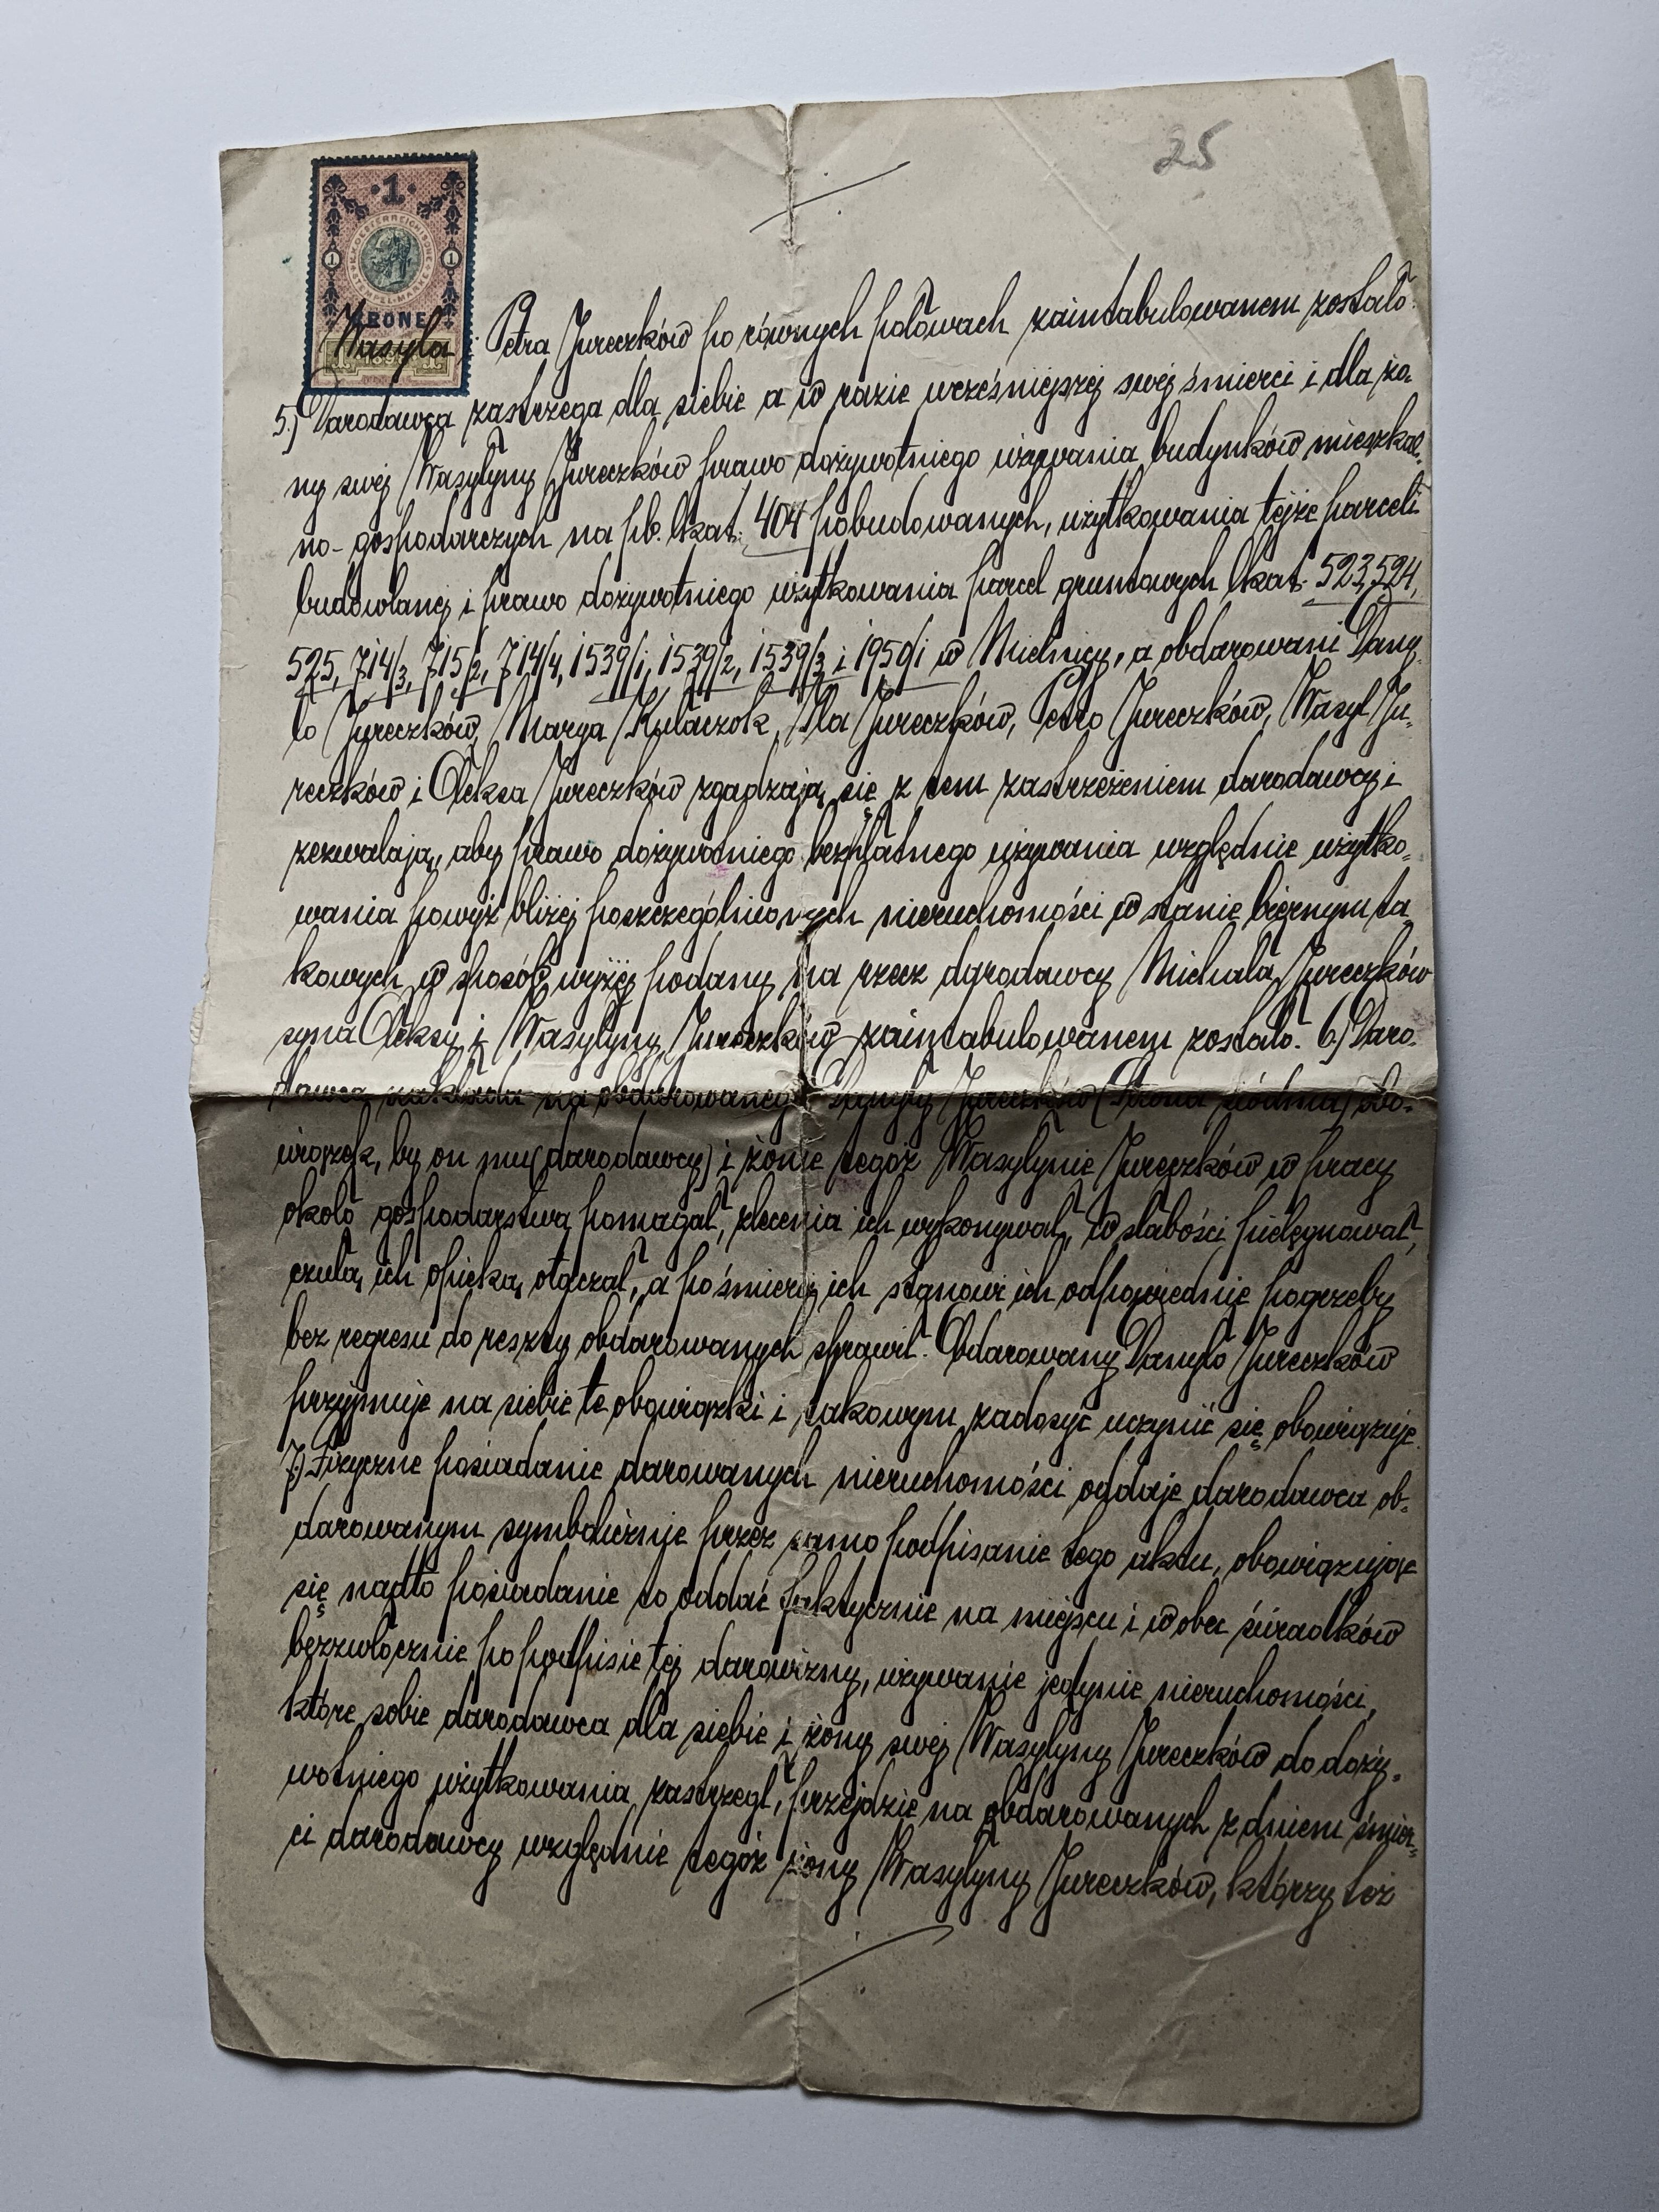 25
1
1 1
KRONE
1898
Wasyla i Petra Jureczków po równych połowach zaintabulowanem zostało.
5.) Darodawca zastrzega dla siebie a w razie wcześniejszej swej śmierci i dla żo-
ny swej Wasylyny Jureczków prawo dożywotniego używania budynków mieszkal-
no-gospodarczych na pb. lkat. 404 pobudowanych, użytkowania tejże parceli
budowlanej i prawo dożywotniego użytkowania parcel gruntowych lkat. 523, 524,
525, 714/3, 715/2, 714/4, 1539/1, 1539/2, 1539/3 i 1950/1 w Mielnicy, a obdarowani Dany-
ło Jureczków, Marya Kułaczok, Ila Jureczków, Petro Jureczków, Wasyl Ju-
reczków i Ołeksa Jureczków zgadzają się z tem zastrzeżeniem darodawcy i
zezwalają, aby prawo dożywotniego bezpłatnego używania względnie użytko-
wania powyż bliżej poszczególnionych nieruchomości w stanie biernym ta-
kowych w sposób wyżej podany na rzecz darodawcy Michała Jureczków
syna Ołeksy i Wasylyny Jureczków zaintabulowanem zostało. 6.) Daro-
dawca nakłada na obdarowanego Danyłę Jureczków (Strona siódma) obo-
wiązek, by on mu (darodawcy) i żonie tegoż Wasylynie Jureczków w pracy
około gospodarstwa pomagał, zlecenia ich wykonywał, w słabości pielęgnował,
czułą ich opieką otaczał, a po śmierci ich stanowi ich odpowiednie pogrzeby
bez regresu do reszty obdarowanych sprawił. Obdarowany Danyło Jureczków
przyjmuje na siebie te obowiązki i takowym zadosyć uczynić się obowiązuje.
7.) Fizyczne posiadanie darowanych nieruchomości oddaje darodawca ob-
darowanym symbolicznie przez samo podpisanie tego aktu, obowiązując
się nadto posiadanie to oddać faktycznie na miejscu i wobec świadków
bezzwłocznie po podpisie tej darowizny, używanie jedynie nieruchomości,
które sobie darodawca dla siebie i żony swej Wasylyny Jureczków do doży-
wotniego użytkowania zastrzegł, przejdzie na obdarowanych z dniem śmier-
ci darodawcy względnie tegoż żony Wasylyny Jureczków, którzy też